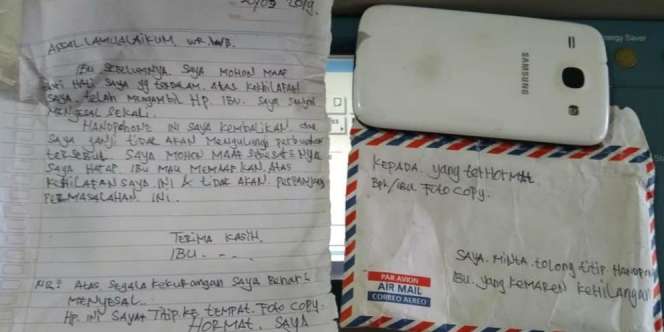 20/03 2019.
ASSALLAMUALAIKUM. WR. WB.
IBU SEBELUMNYA. SAYA MOHON MAAF
DARI HATI SAYA yg TERDALAM. ATAS KEKHILAFAN
SAYA. TELAH MENGAMBIL HP. IBU. SAYA SANGAT
MENYESAL SEKALI.
HANDPHONE INI SAYA KEMBALIKAN. dan
SAYA JANJI TIDAK AKAN MENGULANGI PERBUATAN
TERSEBUT. SAYA MOHON MAAF SEBESAR2NYA
SAYA HARAP. IBU MAU MEMAAFKAN ATAS
KEHILAFAN SAYA INI & TIDAK AKAN PERPANJANG
PERMASALAHAN INI.
TERIMA KASIH.
IBU. - . -
NB: ATAS SEGALA KEKURANGAN SAYA BENAR2
MENYESAL..
HP. INI SAYA TITIP KE TEMPAT. FOTO COPY.
HORMAT. SAYA
Energy Saver
SAMSUNG
KEPADA. yang TERHORMAT.
Bpk/IBU FOTO COPY.
SAYA. MINTA. tolong titip HANDPHONE
IBU. yang KEMAREN KEHILANGAN
PAR AVION
AIR MAIL
CORREO AEREO